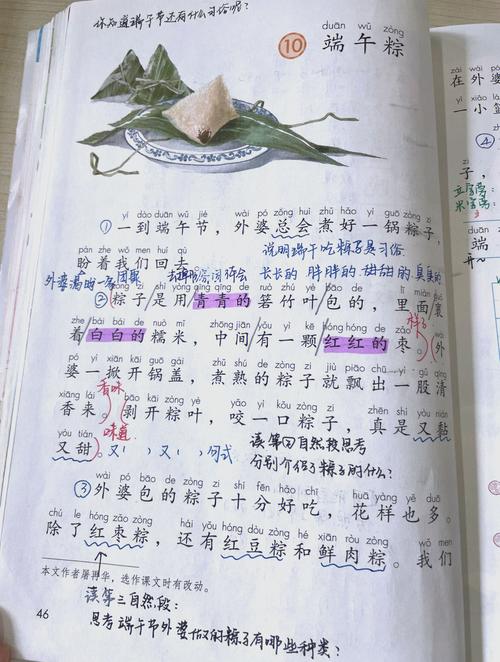 你知道端午节还有什么习俗呢?
duān wǔ zòng
10 端午粽
yí dào duān wǔ jié wài pó zǒng huì zhǔ hǎo yì guō zòng zi
①一到端午节,外婆总会煮好一锅粽子,
pàn zhe wǒ men huí qù
盼着我们回去。
说明端午吃粽子是习俗
长长的 胖胖的 甜甜的 臭臭的
外婆满的一家团聚
zòng zi shì yòng qīng qīng de ruò zhú yè bāo de lǐ miàn guǒ
②粽子是用青青的箬竹叶包的,里面裹
样子
zhe bái bái de nuò mǐ zhōng jiān yǒu yì kē hóng hóng de zǎo wài
着白白的糯米,中间有一颗红红的枣。外
pó yì xiān kāi guō gài zhǔ shú de zòng zi jiù piāo chū yì gǔ qīng
婆一掀开锅盖,煮熟的粽子就飘出一股清
香味
xiāng lái bāo kāi zòng yè yǎo yì kǒu zòng zi zhēn shì yòu nián
香来。剥开粽叶,咬一口粽子,真是又黏
味道
yòu tián
又甜。
又(),又(),句式
读第②自然段思考
分别介绍了粽子的什么?
wài pó bāo de zòng zi shí fēn hǎo chī huā yàng yě duō
③外婆包的粽子十分好吃,花样也多。
chú le hóng zǎo zòng hái yǒu hóng dòu zòng hé xiān ròu zòng wǒ men
除了红枣粽,还有红豆粽和鲜肉粽。我们
本文作者屠再华,选作课文时有改动。
46
读第三自然段:
思考端午节外婆做的粽子有哪些种类?
zài wài pó
在外婆
yì xiǎo lán
一小篮
④
zi
子,